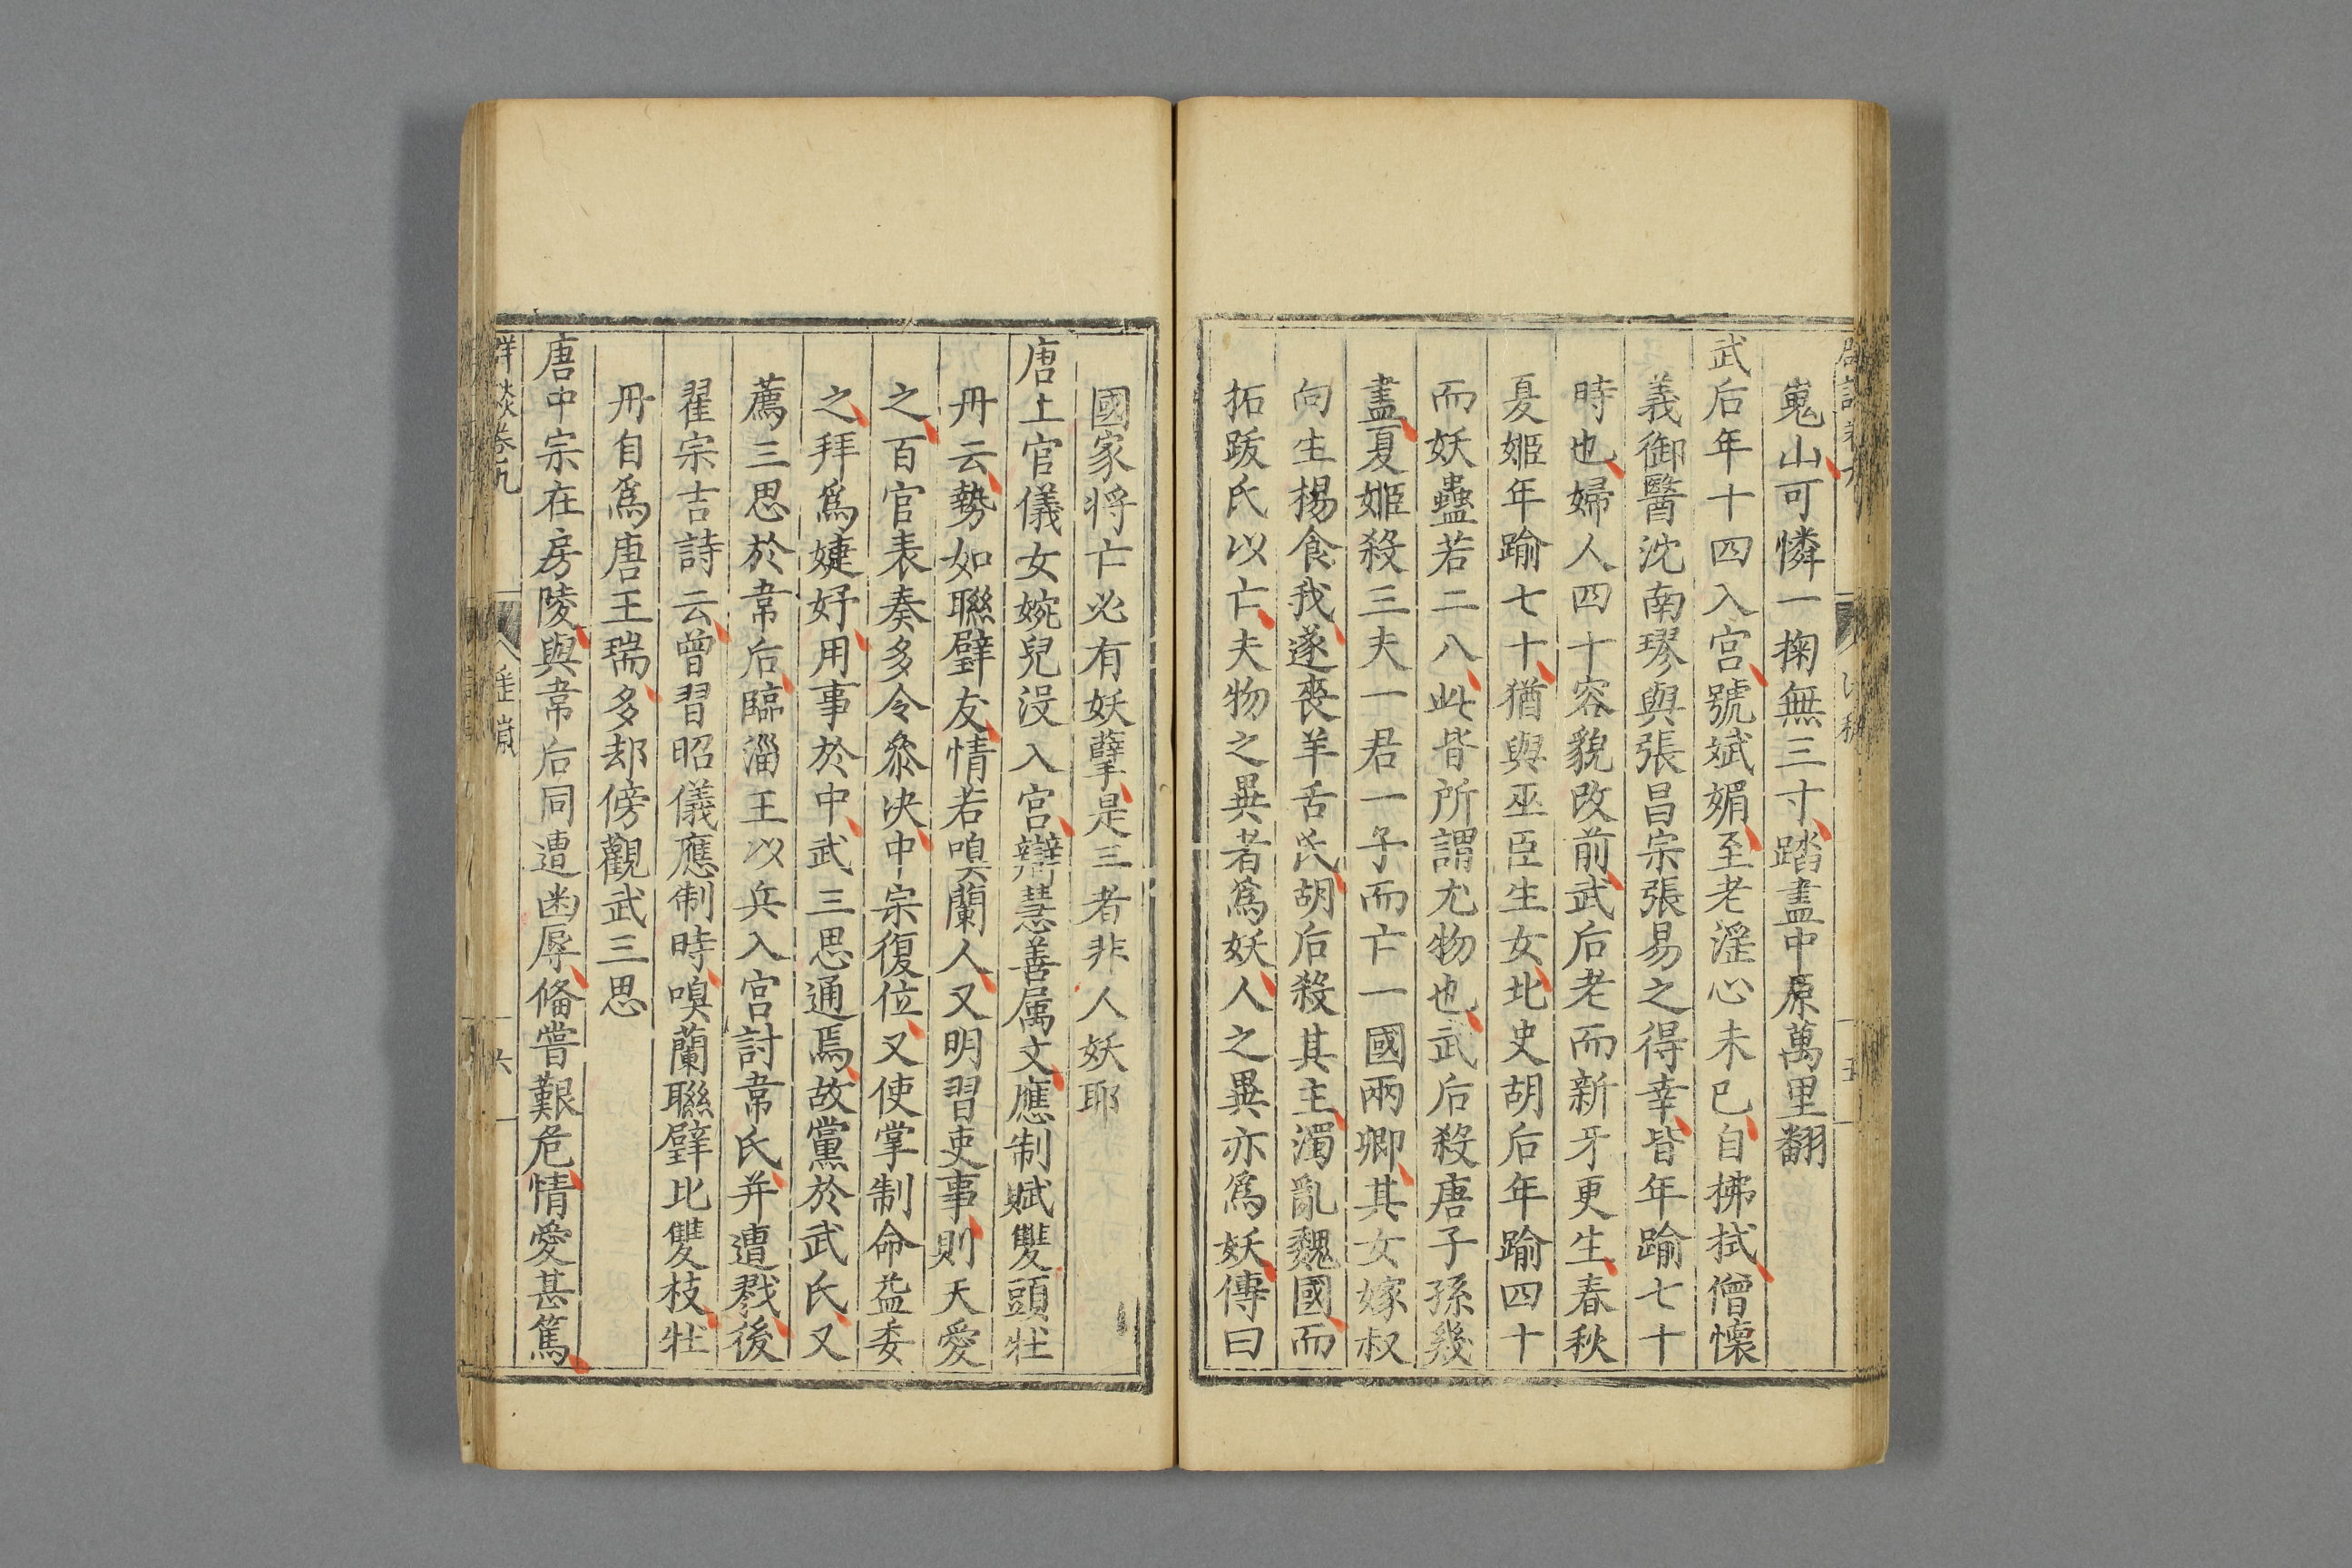 嵬山可憐一掬無三寸踏盡中原萬里翻
武后年十四入宮號斌媚至老淫心未已自拂拭僧懷
義御醫沈南璆與張昌宗張易之得幸皆年踰七十
時也婦人四十容貌改前武后老而新牙更生春秋
夏姬年踰七十猶與巫臣生女北史胡后年踰四十
而妖蠱若二八此皆所謂尤物也武后殺唐子孫幾
盡夏姬殺三夫一君一子而亡一國兩卿其女嫁叔
向生楊食我遂喪羊舌氏胡后殺其主濁亂魏國而
拓跋氏以亡夫物之異者爲妖人之異亦爲妖傳曰
國家将亡必有妖孽是三者非人妖耶
唐上官儀女婉兒没入宮辯慧善属文應制賦雙頭牡
丹云勢如聯璧友情若嗅蘭人又明習吏事則天愛
之百官表奏多令叅决中宗復位又使掌制命益委
之拜爲婕妤用事於中武三思通焉故黨於武氏又
薦三思於韋后臨淄王以兵入宮討韋氏并遭戮後
翟宗吉詩云曾習昭儀應制時嗅蘭聯璧比雙枝牡
丹自爲唐王瑞多却傍觀武三思
唐中宗在房陵與韋后同遭幽辱俻嘗艱危情愛甚篤
群談卷九
六